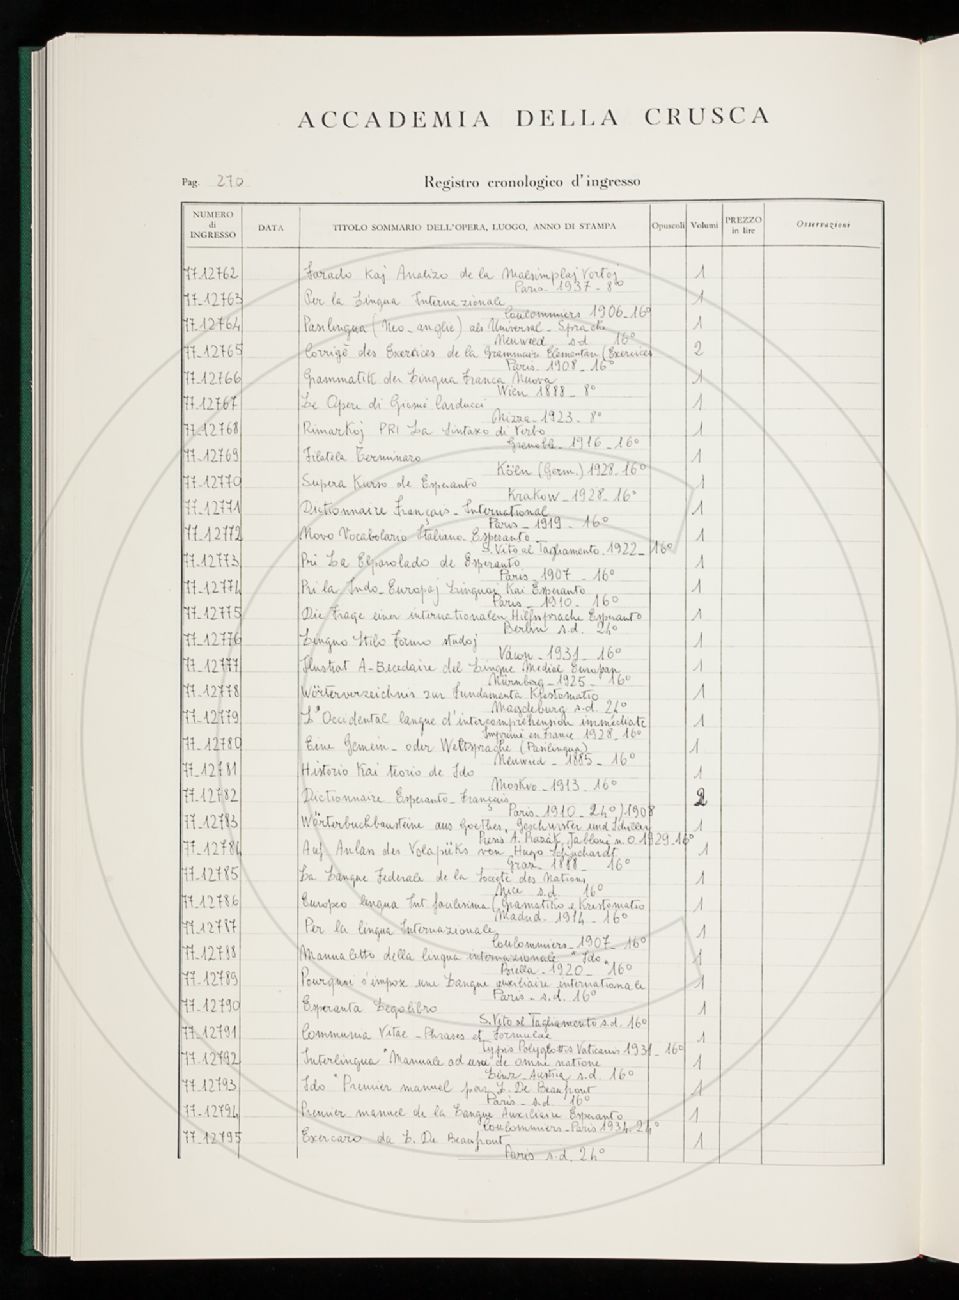 ACCADEMIA DELLA CRUSCA
Pag. 270
Registro cronologico d'ingresso
NUMERO di INGRESSO DATA TITOLO SOMMARIO DELL'OPERA, LUOGO, ANNO DI STAMPA Opuscoli Volumi PREZZO in lire Osservazioni
77-12762 Farado Kaj Analizo de la Malsimplaj Vortoj 1
1937 - 8°
77-12763 Per la Lingua Internazionale 1
Coulommiers 1906-16°
77-12764 Pasilingua (Neo-anglie) als Universal-Sprache 1
Neuwied s.d 16°
77-12765 Corrigè des Exercices de la Grammaire Elementari (Exercices 2
Paris. 1908-16°
77-12766 Grammatik der Lingua Franca Nuova 1
Wien 1888-8°
77-12767 Le Opere di Giosuè Carducci 1
Nizza-1923-8°
77-12768 Rimarkoj PRI La Sintaxo di Verbo 1
Grenoble-1916-16°
77-12769 Filatela Terminaro 1
Köln (Germ.) 1928-16°
77-12770 Supera Kurso de Esperanto 1
Krakow-1928-16°
77-12771 Dictionnaire Français-International 1
Paris-1919-16°
77-12772 Novo Vocabolario Italiano-Esperanto- 1
S. Vito al Tagliamento. 1922-16°
77-12773 Pri La Elparolado de Esperanto 1
Paris-1907-16°
77-12774 Pri la Indo-Europaj Linguoj Kai Esperanto 1
Paris-1910-16°
77-12775 Die Frage einer internationalen Hilfssprache Esperanto 1
Berlin s.d. 24°
77-12776 Linguo Stilo Formo studoj 1
1931-16°
77-12777 Ilustrat A-Becedaire del Lingue Medial Europan 1
Nürnberg-1925-16°
77-12778 Wörterverzeichnis zur Fundamenta Krestomatio 1
Magdeburg s.d. 24°
77-12779 L'Occidental langue d'intercomprèhension immèdiate 1
Imprimé en France 1928-16°
77-12780 Eine Gemein-oder Weltsprache (Pasilingua) 1
Neuwied-1885-16°
77-12781 Historio Kai teorio de Ido 1
Moskvo-1913-16°
77-12782 Dictionnaire Esperanto-Français 2
Paris-1910-24°/1908
77-12783 Wörterbuchbausteine aus Goethes, Geschwister und Schiller 1
1929-16°
77-12784 Auf Anlass des Volapüks von Hugo Schuchardt 1
Graz 1888-16°
77-12785 La Langue Federale de la Sociètè des Nations 1
Nice s.d 16°
77-12786 Europeo lingua Int facilisima (Gramatiko e Krestomatio 1
Madrid. 1914-16°
77-12787 Per la lingua Internazionale 1
Coulommiers-1907-16°
77-12788 Manualetto della lingua internazionale "Ido" 1
Biella-1920-16°
77-12789 Pourquoi s'impose une Langue auxiliaire internationale 1
Paris-s.d. 16°
77-12790 Esperanta Legolibro 1
S. Vito al Tagliamento s.d. 16°
77-12791 Communia Vitae-Phrases et Formulae 1
Typis Polyglottis Vaticanis 1931-16°
77-12792 Interlingua "Manuale ad usu de omni natione 1
Linz-Austria s.d. 16°
77-12793 Ido "Premier manuel par L. De Beaufront 1
Paris-s.d. 16°
77-12794 Premier manuel de la Langue Auxiliaire Esperanto 1
Coulommiers-Paris 1934-24°
77-12795 Exercaro da L. De Beaufront 1
Paris s.d. 24°